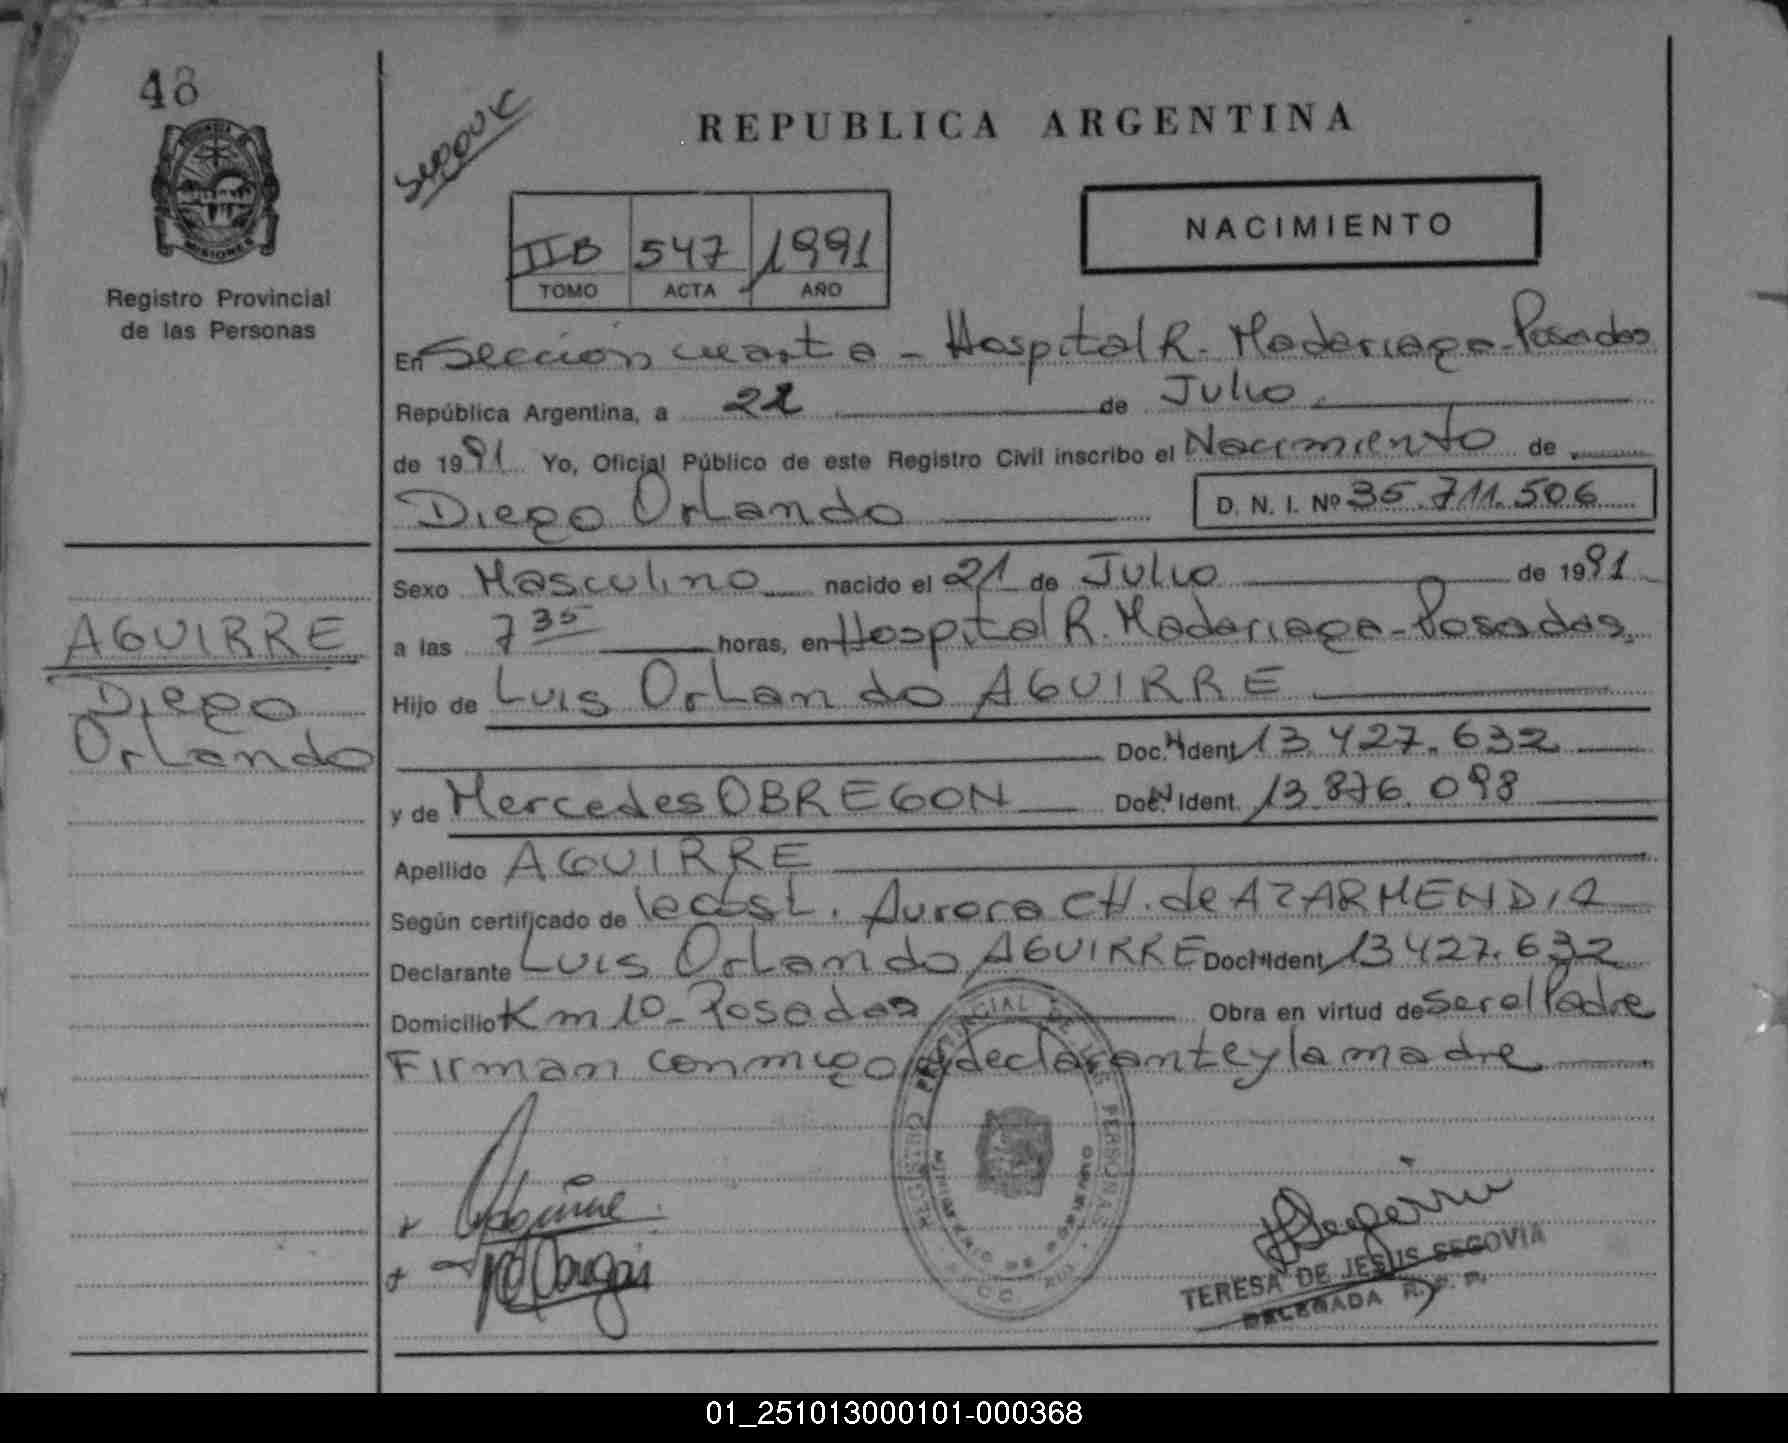 48
REPUBLICA ARGENTINA
MISIONES
Registro Provincial
de las Personas
IIB 547 1991
TOMO ACTA AÑO
NACIMIENTO
En Sección cuarta - Hospital R. Madariaga - Posadas
República Argentina, a 22 de Julio
de 1991 Yo, Oficial Público de este Registro Civil inscribo el Nacimiento de
Diego Orlando D. N. I. Nº 35.711.506
Sexo Masculino nacido el 21 de Julio de 1991
AGUIRRE
Diego
Orlando
a las 7 35 horas, en Hospital R. Madariaga - Posadas.
Hijo de Luis Orlando AGUIRRE
Doc. N Ident 13.427.632
y de Mercedes OBREGON Doc. N Ident. 13.876.098
Apellido AGUIRRE
Según certificado de la obst. Aurora CH. de AZARMENDIA
Declarante Luis Orlando AGUIRRE Doc N Ident 13.427.632
Domicilio Km 10 - Posadas Obra en virtud de ser el Padre
Firman conmigo el declarante y la madre
REGISTRO PROVINCIAL DE LAS PERSONAS
TERESA DE JESUS SEGOVIA
DELEGADA R. P. P.
01_251013000101-000368